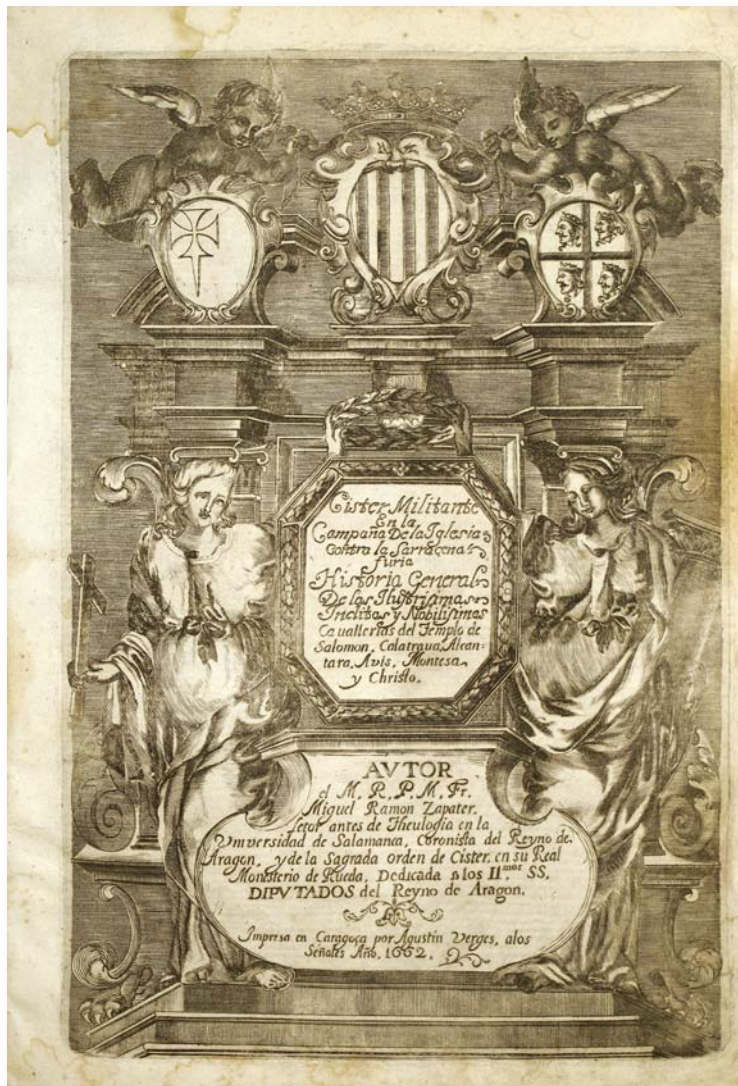 Cister Militante
En la
Campaña De la Iglesia
Contra la Sarracena
furia
Historia General
De las Ilustrisimas
Inclitas y Nobilisimas
Cauallerias del Templo de
Salomon, Calatraua, Alcan-
tara, Avis, Montesa
y Christo.
AVTOR
el M. R. P. M. Fr.
Miguel Ramon Zapater.
Letor antes de Theulogia en la
Vniversidad de Salamanca, Coronista del Reyno de
Aragon, y de la Sagrada orden de Cister. en su Real
Monesterio de Rueda, Dedicada a los Il.mos SS.
DIPVTADOS del Reyno de Aragon.
Impresa en Caragoça por Agustin Verges, alos
Señales Año, 1662.